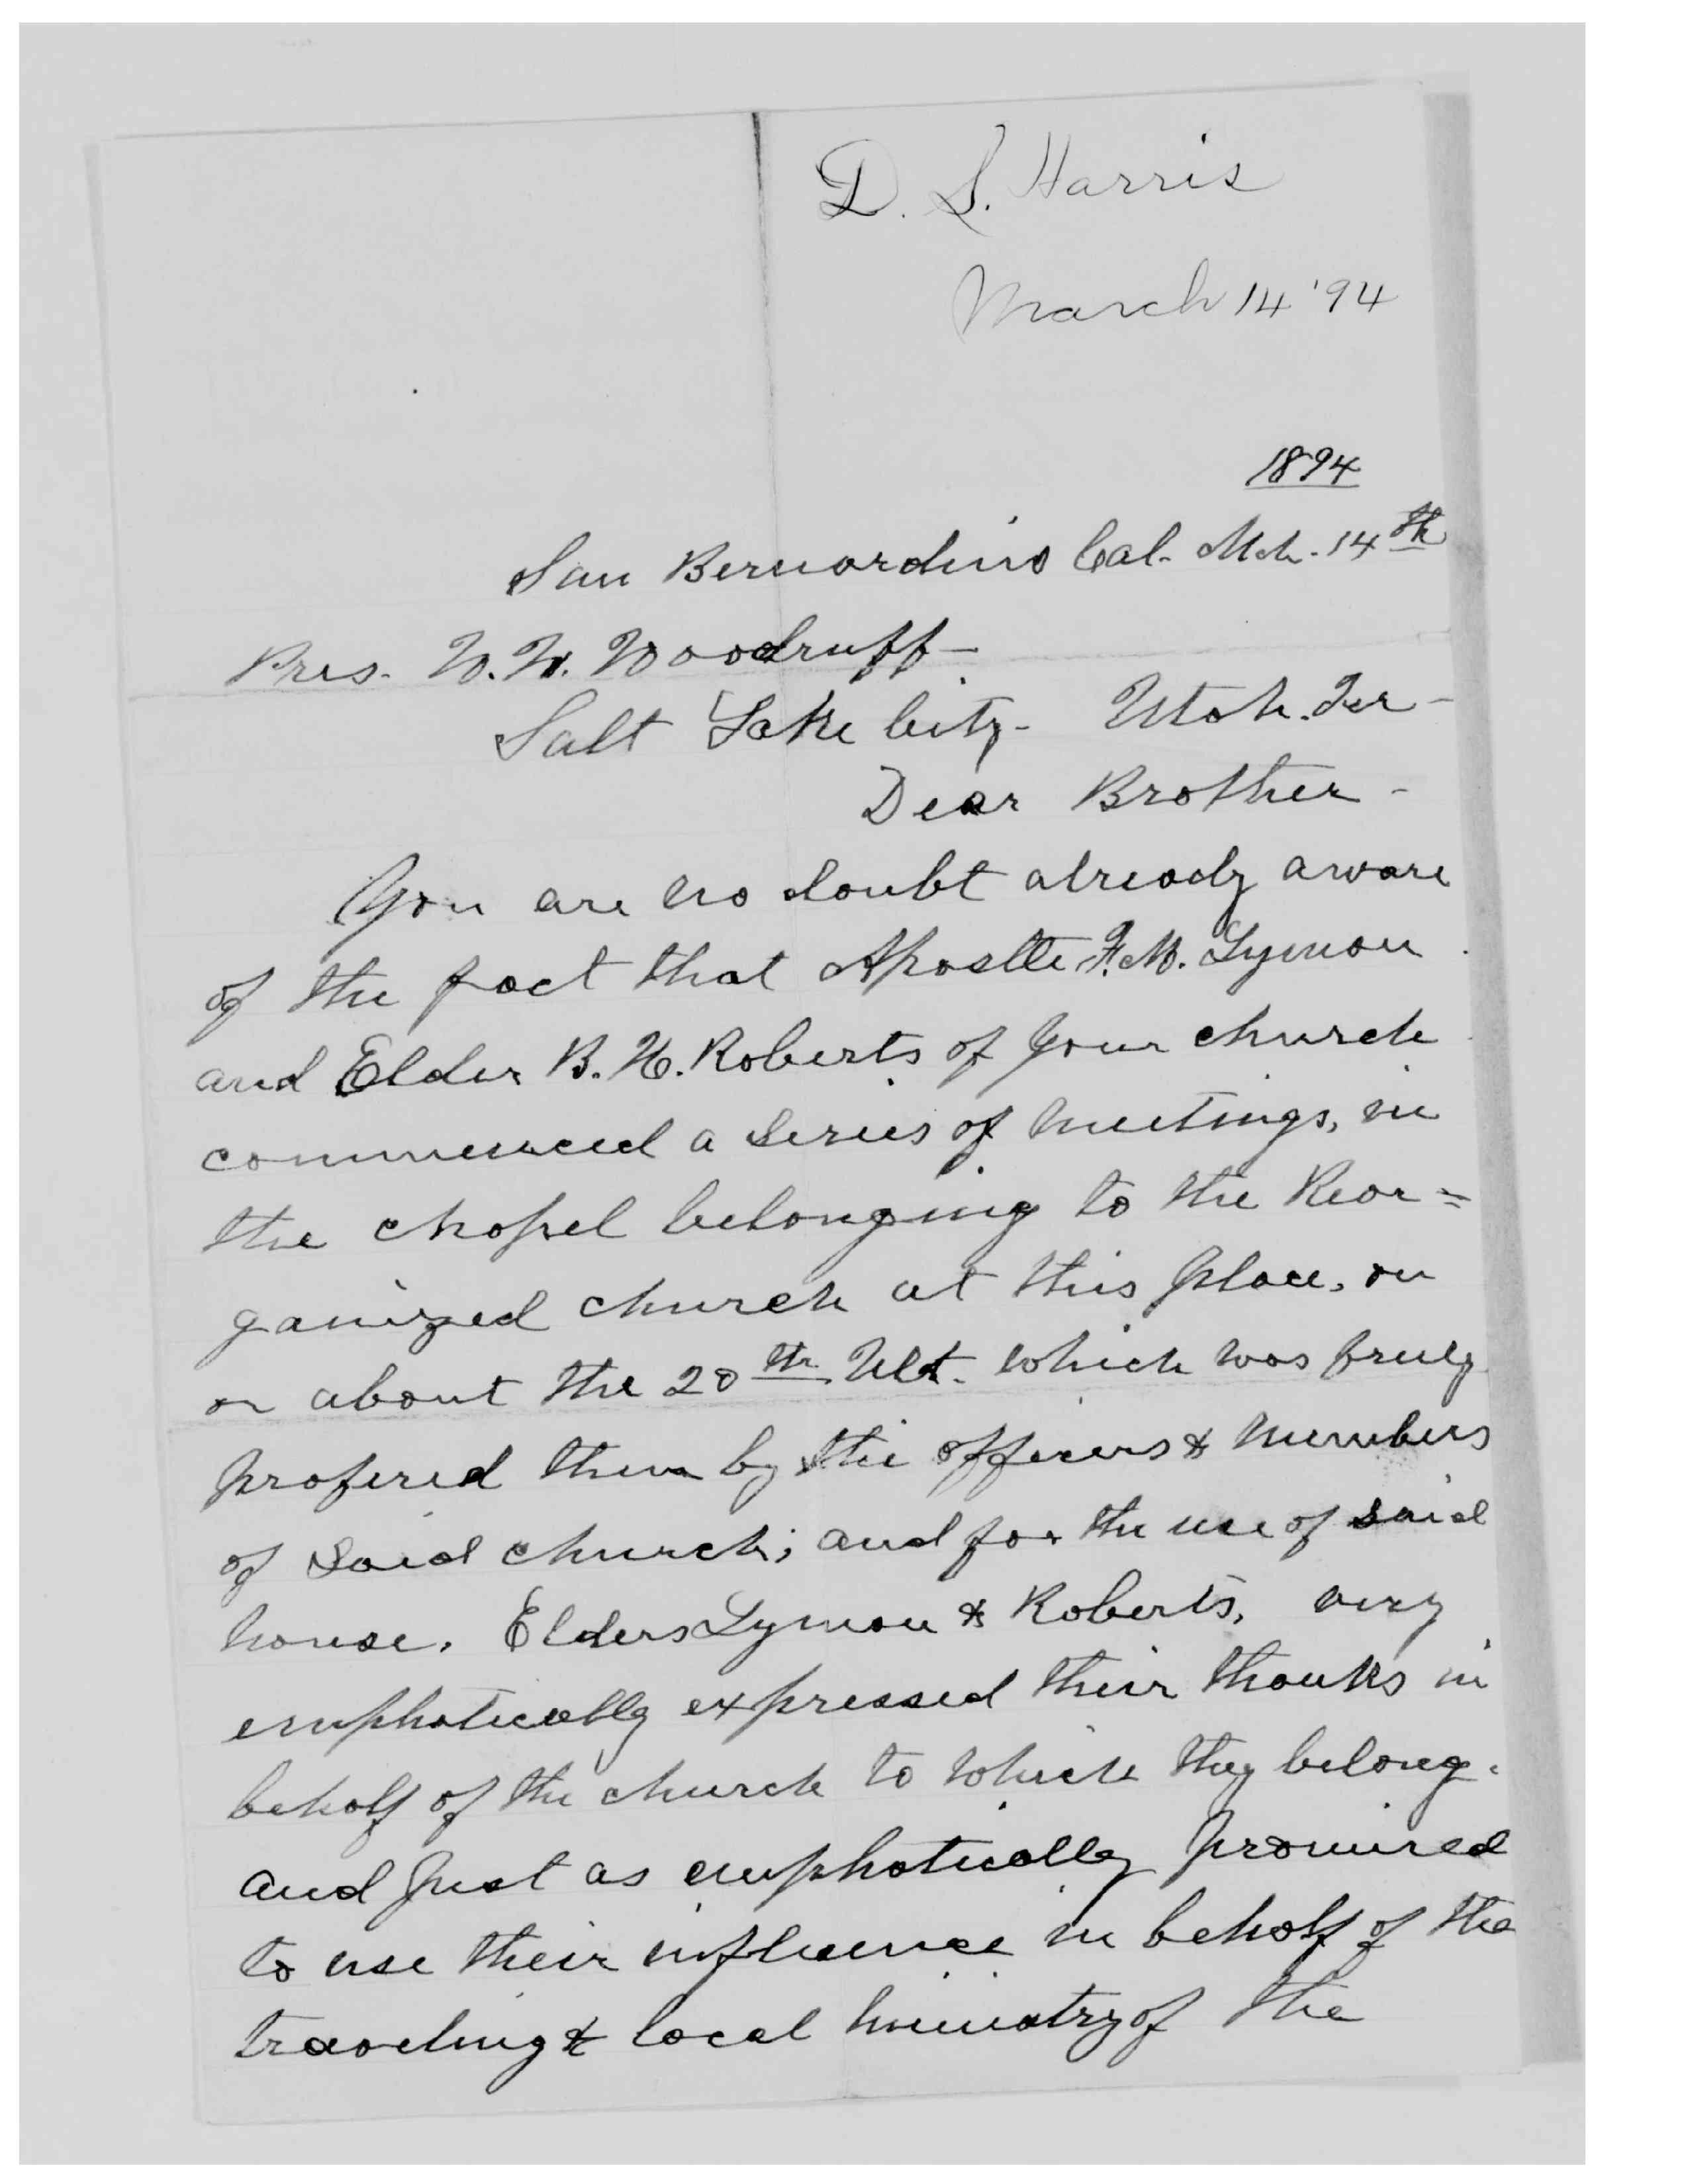 D. S. Harris
March 14 '94
1894
San Bernardino Cal. Mch. 14th
Pres. W. W. Woodruff -
Salt Lake City - Utah. Ter -
Dear Brother -
You are no doubt already aware
of the fact that Apostle F. M. Lyman
and Elder B. H. Roberts of your church
commenced a series of meetings, in
the chapel belonging to the Reor=
ganized church at this place, on
or about the 20th Ult. which was freely
profered them by the officers & members
of said church; and for the use of said
house, Elders Lyman & Roberts, very
emphatically expressed their thanks in
behalf of the church to which they belong.
and just as emphatically promised
to use their influence in behalf of the
traveling & local ministry of the